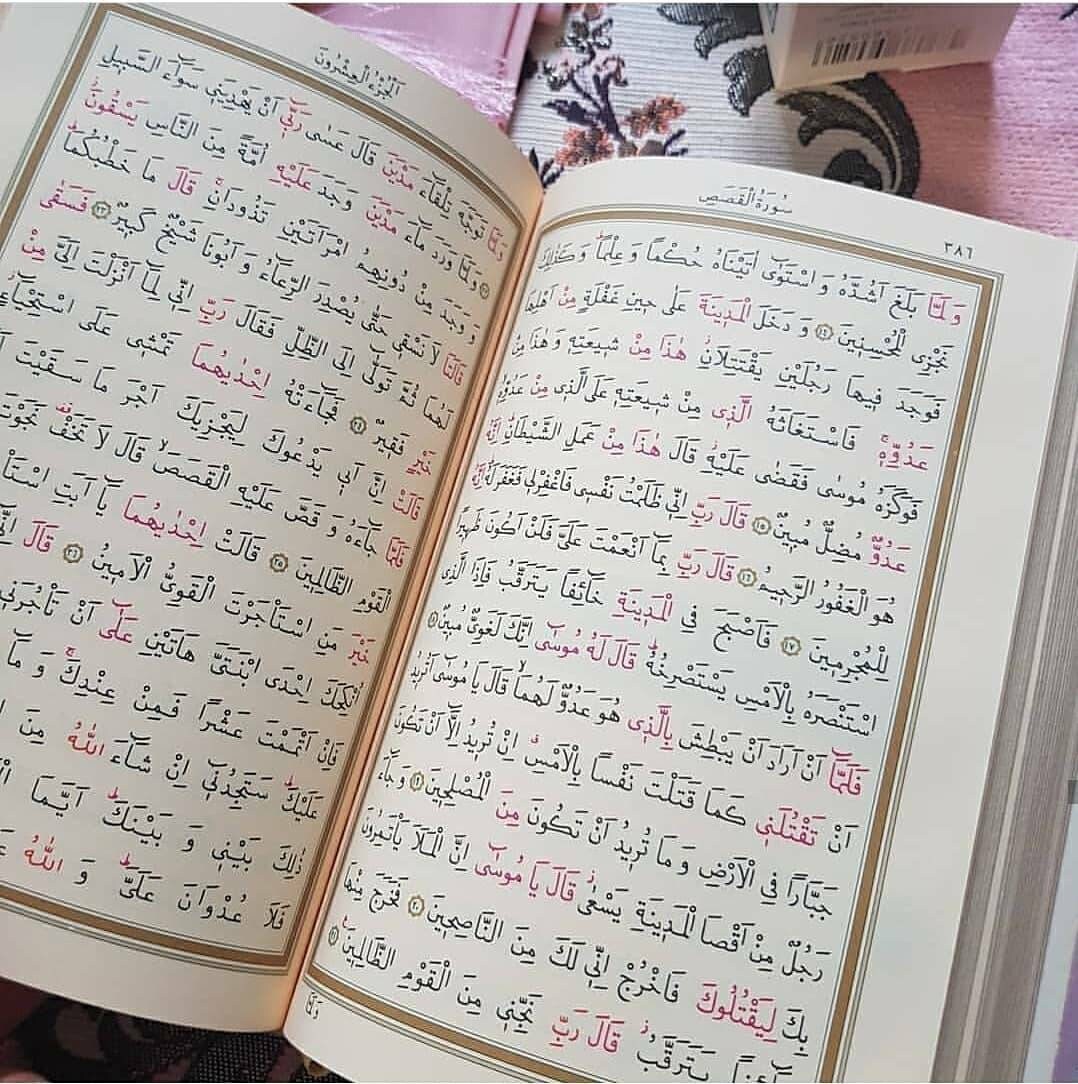 ٣٨٦
سُورَةُ الْقَصَصِ
وَلَمَّا بَلَغَ اَشُدَّهُ وَاسْتَوٰى اٰتَيْنَاهُ حُكْمًا وَعِلْمًا وَكَذٰلِكَ
نَجْزِى الْمُحْسِنِينَ ١٤ وَدَخَلَ الْمَدِينَةَ عَلٰى حِينِ غَفْلَةٍ مِنْ اَهْلِهَا
فَوَجَدَ فِيهَا رَجُلَيْنِ يَقْتَتِلَانِ هٰذَا مِنْ شِيعَتِهِ وَهٰذَا مِنْ
عَدُوِّهِ فَاسْتَغَاثَهُ الَّذِى مِنْ شِيعَتِهِ عَلَى الَّذِى مِنْ عَدُوِّهِ
فَوَكَزَهُ مُوسٰى فَقَضٰى عَلَيْهِ قَالَ هٰذَا مِنْ عَمَلِ الشَّيْطَانِ اِنَّهُ
عَدُوٌّ مُضِلٌّ مُبِينٌ ١٥ قَالَ رَبِّ اِنِّى ظَلَمْتُ نَفْسِى فَاغْفِرْلِى فَغَفَرَ لَهُ اِنَّهُ
هُوَ الْغَفُورُ الرَّحِيمُ ١٦ قَالَ رَبِّ بِمَا اَنْعَمْتَ عَلَىَّ فَلَنْ اَكُونَ ظَهِيرًا
لِلْمُجْرِمِينَ ١٧ فَاَصْبَحَ فِى الْمَدِينَةِ خَائِفًا يَتَرَقَّبُ فَاِذَا الَّذِى
اسْتَنْصَرَهُ بِالْاَمْسِ يَسْتَصْرِخُهُ قَالَ لَهُ مُوسٰى اِنَّكَ لَغَوِىٌّ مُبِينٌ ١٨
فَلَمَّا اَنْ اَرَادَ اَنْ يَبْطِشَ بِالَّذِى هُوَ عَدُوٌّ لَهُمَا قَالَ يَا مُوسٰى اَتُرِيدُ
اَنْ تَقْتُلَنِى كَمَا قَتَلْتَ نَفْسًا بِالْاَمْسِ اِنْ تُرِيدُ اِلَّا اَنْ تَكُونَ
جَبَّارًا فِى الْاَرْضِ وَمَا تُرِيدُ اَنْ تَكُونَ مِنَ الْمُصْلِحِينَ ١٩ وَجَاءَ
رَجُلٌ مِنْ اَقْصَا الْمَدِينَةِ يَسْعٰى قَالَ يَا مُوسٰى اِنَّ الْمَلَاَ يَاْتَمِرُونَ
بِكَ لِيَقْتُلُوكَ فَاخْرُجْ اِنِّى لَكَ مِنَ النَّاصِحِينَ ٢٠ فَخَرَجَ مِنْهَا
خَائِفًا يَتَرَقَّبُ قَالَ رَبِّ نَجِّنِى مِنَ الْقَوْمِ الظَّالِمِينَ ٢١
وَلَمَّا
اَلْجُزْءُ الْعِشْرُونَ
وَلَمَّا تَوَجَّهَ تِلْقَاءَ مَدْيَنَ قَالَ عَسٰى رَبِّى اَنْ يَهْدِيَنِى سَوَاءَ السَّبِيلِ
٢٢ وَلَمَّا وَرَدَ مَاءَ مَدْيَنَ وَجَدَ عَلَيْهِ اُمَّةً مِنَ النَّاسِ يَسْقُونَ
وَوَجَدَ مِنْ دُونِهِمُ امْرَاَتَيْنِ تَذُودَانِ قَالَ مَا خَطْبُكُمَا
قَالَتَا لَا نَسْقِى حَتّٰى يُصْدِرَ الرِّعَاءُ وَاَبُونَا شَيْخٌ كَبِيرٌ ٢٣ فَسَقٰى
لَهُمَا ثُمَّ تَوَلّٰى اِلَى الظِّلِّ فَقَالَ رَبِّ اِنِّى لِمَا اَنْزَلْتَ اِلَىَّ مِنْ
خَيْرٍ فَقِيرٌ ٢٤ فَجَاءَتْهُ اِحْدٰيهُمَا تَمْشِى عَلَى اسْتِحْيَاءٍ
قَالَتْ اِنَّ اَبِى يَدْعُوكَ لِيَجْزِيَكَ اَجْرَ مَا سَقَيْتَ
فَلَمَّا جَاءَهُ وَقَصَّ عَلَيْهِ الْقَصَصَ قَالَ لَا تَخَفْ نَجَوْتَ
الْقَوْمِ الظَّالِمِينَ ٢٥ قَالَتْ اِحْدٰيهُمَا يَا اَبَتِ
خَيْرَ مَنِ اسْتَاْجَرْتَ الْقَوِىُّ الْاَمِينُ ٢٦ قَالَ
اُنْكِحَكَ اِحْدَى ابْنَتَىَّ هَاتَيْنِ عَلٰى اَنْ تَاْجُرَنِى
فَاِنْ اَتْمَمْتَ عَشْرًا فَمِنْ عِنْدِكَ وَمَا
عَلَيْكَ سَتَجِدُنِى اِنْ شَاءَ اللّٰهُ مِنَ
ذٰلِكَ بَيْنِى وَبَيْنَكَ اَيَّمَا
فَلَا عُدْوَانَ عَلَىَّ وَاللّٰهُ